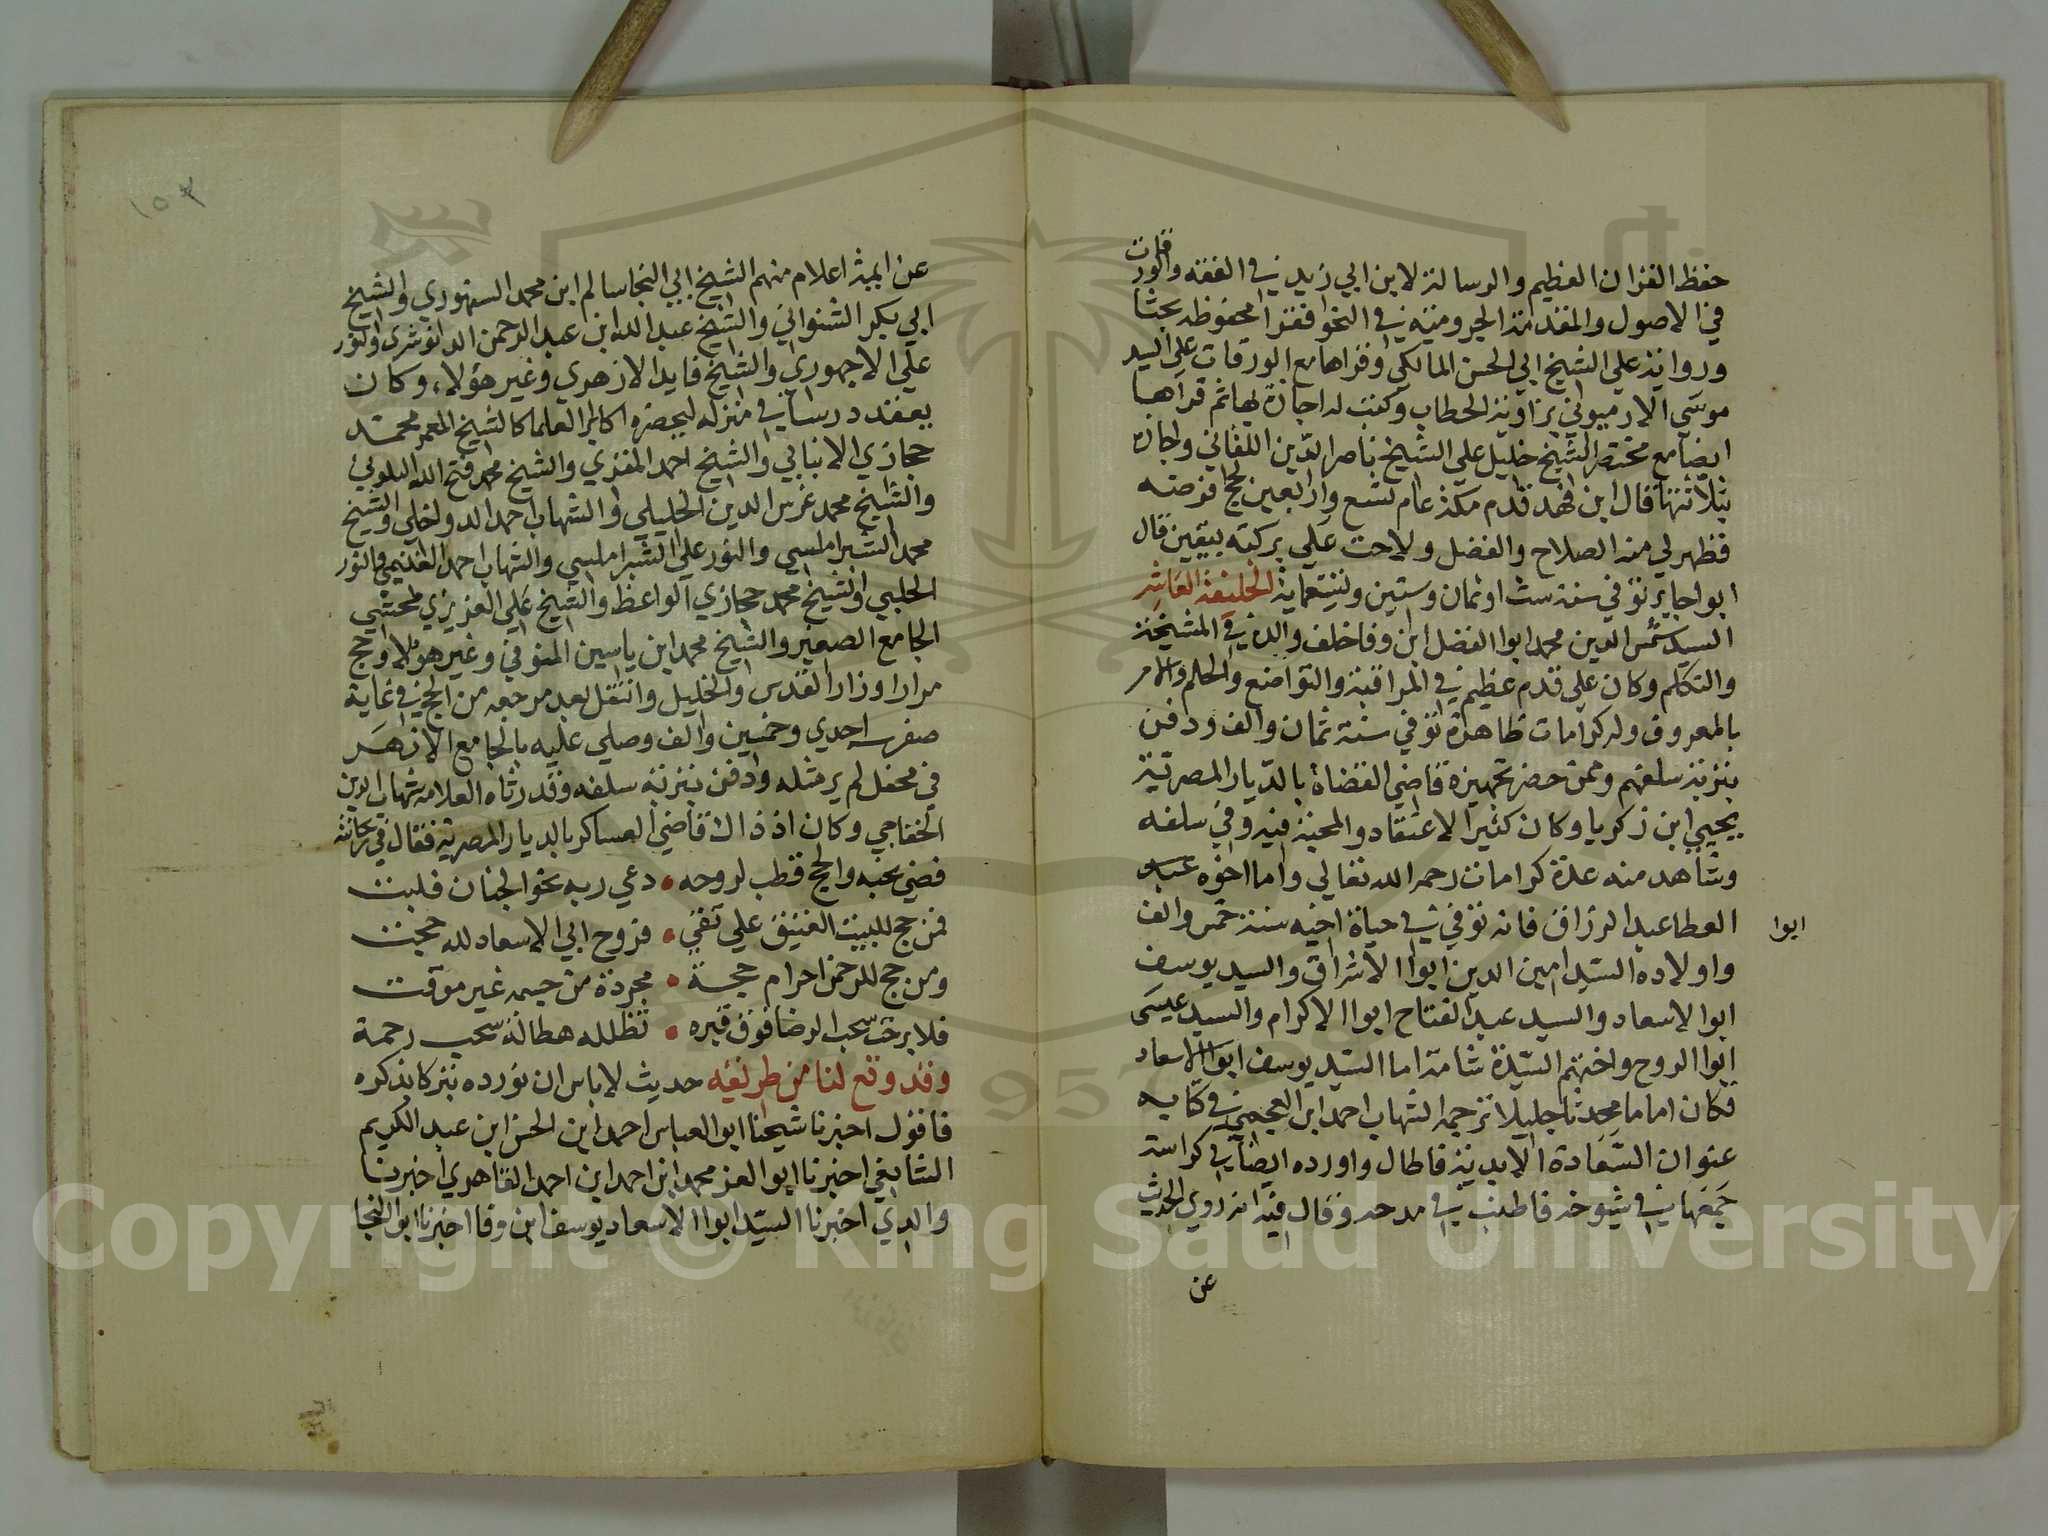 حفظ القران العظيم والرسالة لابن ابي زيد في الفقه والورقات
في الاصول والمقدمة الجرومية في النحو فقرا محفوظه بحثا
ورواية علي الشيخ ابي الحسن المالكي وقراها مع الورقات علي السيد
موسي الارميوني بزاوية الحطاب وكتب له اجازة بها ثم قراها
ايضا مع مختصر الشيخ خليل علي الشيخ ناصر الدين اللقاني واجازه
بثلاثتها قال ابن فهد قدم مكة عام تسع واربعين لحج فرضه
فظهر لي منه الصلاح والفضل ولاحت علي بركته بيقين قال
ابو اجابر توفي سنة ست او ثمان وستين وتسعماية الخليفة العاشر
السيد شمس الدين محمد ابوا الفضل ابن وفا خلف والده في المشيخة
والتكلم وكان علي قدم عظيم في المراقبة والتواضع والحلم والامر
بالمعروف وله كرامات ظاهرة توفي سنة ثمان والف ودفن
بتربة سلفهم وممن حضر تجهيزه قاضي القضاة بالديار المصرية
يحيي ابن زكريا وكان كثير الاعتقاد والمحبة فيه وفي سلفه
وشاهد منه عدة كرامات رحمه الله تعالي واما اخوه عبد
ابوا
العطا عبد الرزاق فانه توفي في حياة اخيه سنة خمس والف
واولاده السيد امين الدين ابوا الاشراق والسيد يوسف
ابوا الاسعاد والسيد عبد الفتاح ابوا الاكرام والسيد عيسي
ابوا الروح واختهم السيدة شامة اما السيد يوسف ابوا الاسعاد
فكان اماما محدثا جليلا ترجمه الشهاب احمد ابن العجمي في كتابه
عنوان السعادة الابدية فاطال واورده ايضا في كراسة
جمعها في شيوخه فاطنب في مدحه وقال فيه انه روي الحديث
عن
١٥٣
عن ايمة اعلام منهم الشيخ ابي النجا سالم ابن محمد السنهوري والشيخ
ابي بكر الشنواني والشيخ عبد الله ابن عبد الرحمن الدانوشري والنور
علي الاجهوري والشيخ فايد الازهري وغير هؤلاء وكان
يعقد درسا في منزله ليحضره اكابر العلما كالشيخ المعمر محمد
حجازي الانبابي والشيخ احمد المقري والشيخ محمد فتح الله البلوني
والشيخ محمد غرس الدين الخليلي والشهاب احمد الدواخلي والشيخ
محمد الشبراملسي والنور علي الشبراملسي والشهاب احمد الغنيمي والنور
الحلبي والشيخ محمد حجازي الواعظ والشيخ علي العزيزي محشي
الجامع الصغير والشيخ محمد ابن ياسين المنوفي وغير هؤلا وحج
مرارا وزار القدس والخليل وانتقل بعد مرجعه من الحج في غاية
صفر سنه احدي وخمسين والف وصلي عليه بالجامع الازهر
في محفل لم ير مثله ودفن بتربة سلفه وقد رثاه العلامه شهاب الدين
الخفاجي وكان اذ ذاك قاضي العساكر بالديار المصرية فقال في مرثاته
قضي نحبه والحج قطب لروحه • دعي ربه نحو الجنان فلبت
فمن حج للبيت العتيق علي تقي • فروح ابي الاسعاد لله حجت
ومن حج للرحمن احرام حجة • مجردة من جسمه غير موقت
فلا برحت سحب الرضا فوق قبره • تظلله هطالة سحب رحمة
وقد وقع لنا من طريقه حديث لا باس ان نورده تبركا بذكره
فاقول اخبرنا شيخنا ابو العباس احمد ابن الحسن ابن عبد الكريم
الشافعي اخبرنا ابو العز محمد ابن احمد ابن احمد القاهري اخبرنا
والدي اخبرنا السيد ابوا الاسعاد يوسف ابن وفا اخبرنا ابو النجا
Copyright © King Saud University
957